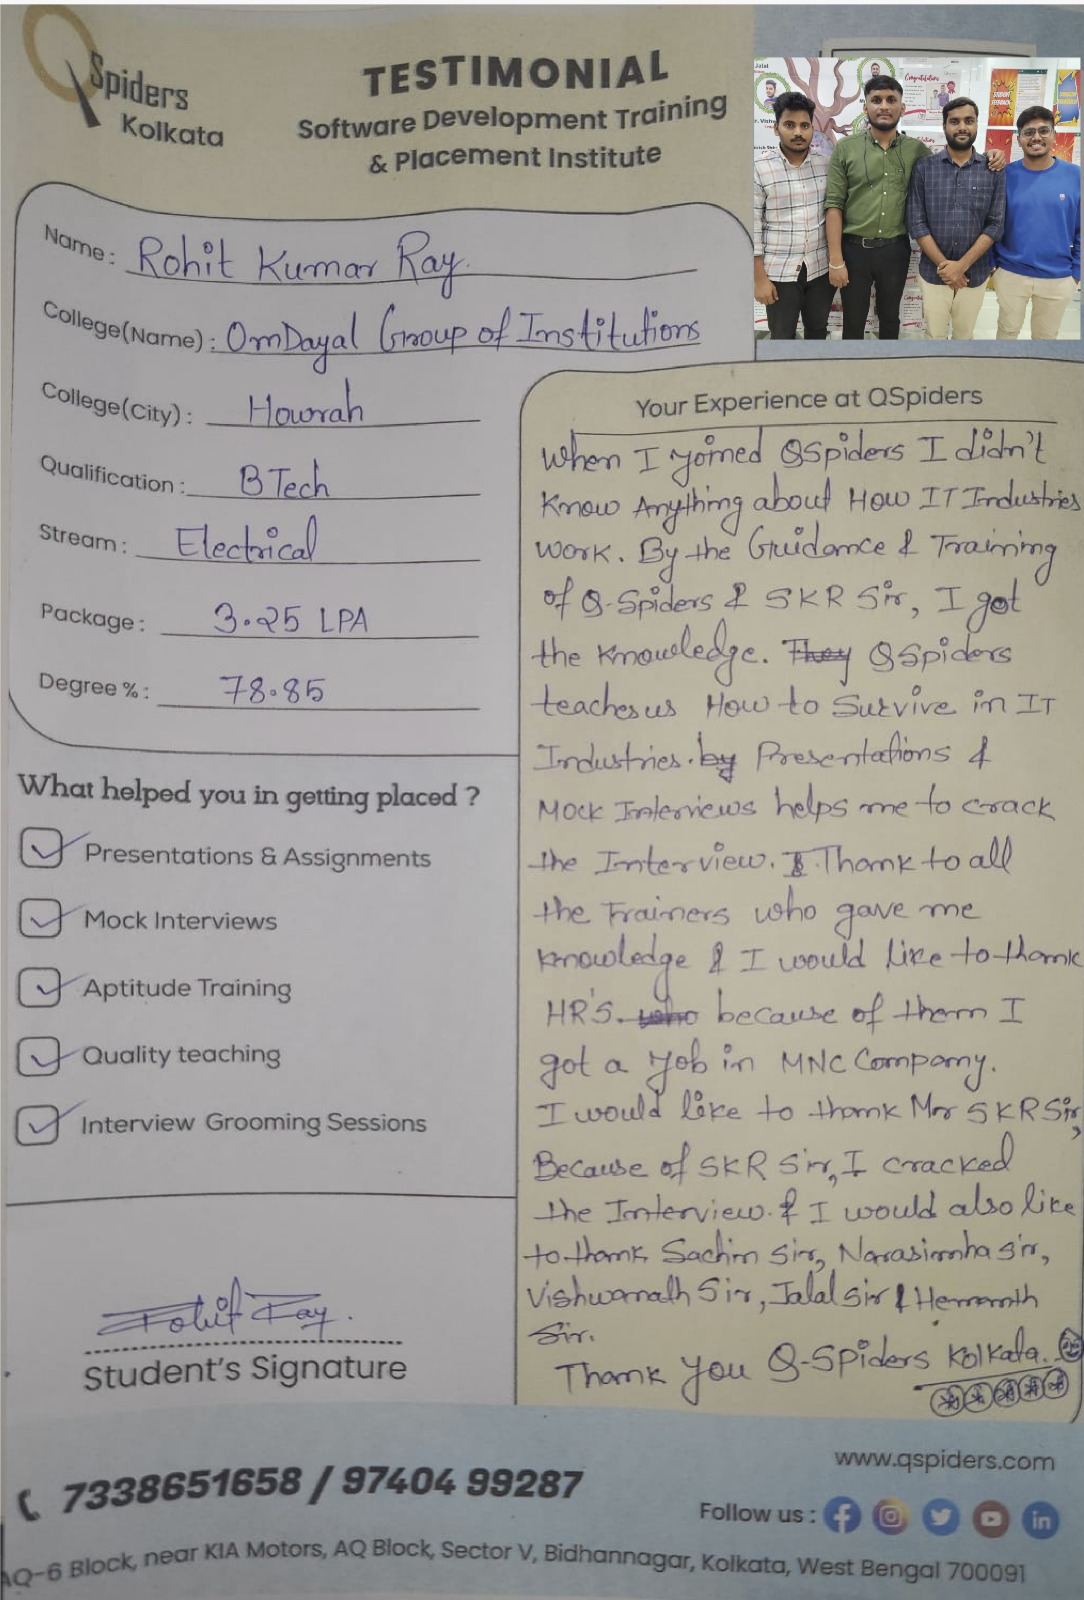 QSpiders
Kolkata
TESTIMONIAL
Software Development Training
& Placement Institute
Name: Rohit Kumar Ray.
College(Name): OmDayal Group of Institutions
College(City): Howrah
Qualification: B Tech
Stream: Electrical
Package: 3.25 LPA
Degree %: 78.85
What helped you in getting placed ?
Presentations & Assignments
Mock Interviews
Aptitude Training
Quality teaching
Interview Grooming Sessions
Rohit Ray.
Student's Signature
Jalal
Congratulations
STUDENT FEEDBACK
Your Experience at QSpiders
When I joined QSpiders I didn't
Know Anything about How IT Industries
work. By the Guidance & Training
of Q-Spiders & SKR Sir, I got
the Knowledge. They QSpiders
teaches us How to Survive in IT
Industries. by Presentations &
Mock Interviews helps me to crack
the Interview. I Thank to all
the Trainers who gave me
knowledge & I would like to thank
HR'S. who because of them I
got a Job in MNC Company.
I would like to thank Mr SKR Sir,
Because of SKR Sir, I cracked
the Interview. & I would also like
to thank Sachin Sir, Narasimha Sir,
Vishwanath Sir, Jalal Sir & Hemanth
Sir.
Thank You Q-Spiders Kolkata.
7338651658 / 97404 99287
www.qspiders.com
Follow us :
AQ-6 Block, near KIA Motors, AQ Block, Sector V, Bidhannagar, Kolkata, West Bengal 700091